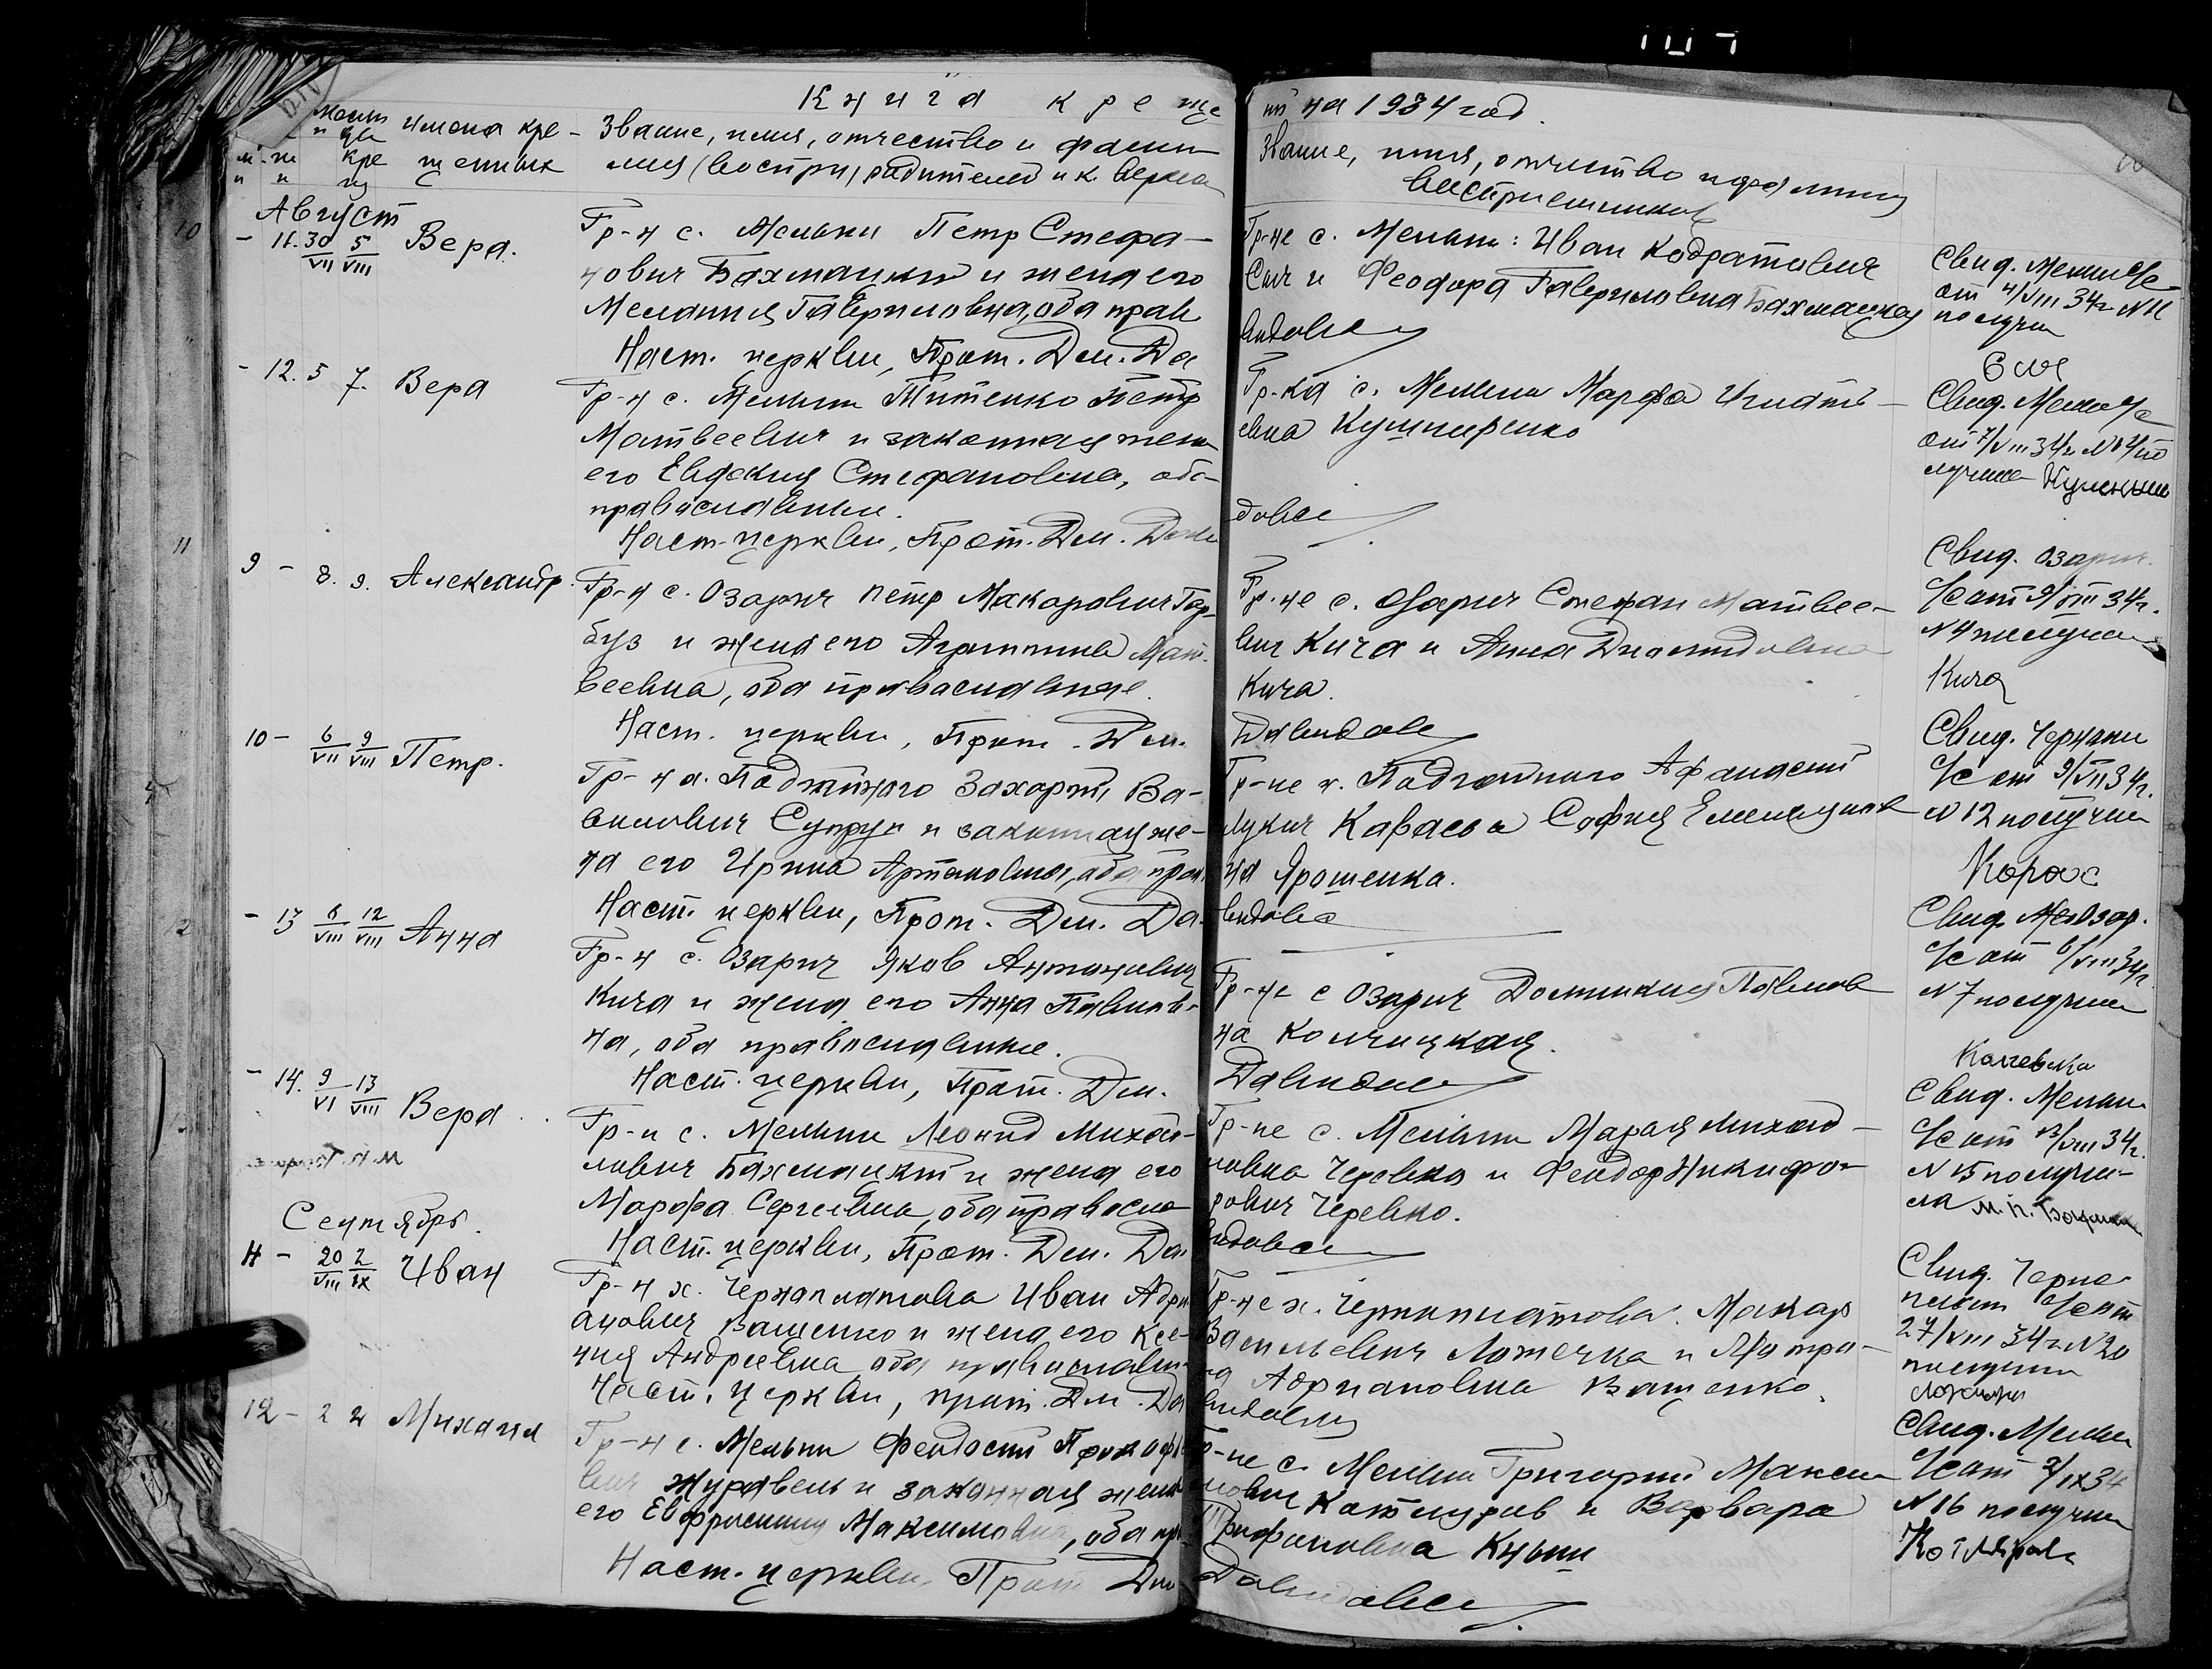 Книга креще
ий на 1934 год.
имена кре-
щенных
Звание, имя, отчество и фами-
лия (восприн) родителей и к. вероисп
Звание, имя, отчество и фамилия
восприемников
Август
- 11. 30/VII 5/VIII Вера.
Гр-н с. Мельни Петр Стефа-
нович Бахмацкий и жена его
Мелания Гавриловна, оба прав
Наст. церкви, Прот. Дм. Да
Гр-не с. Мельни: Иван Кодратович
Сыч и Феодора Гавриловна Бахмацкая
видовсе
Свид. Мельн с/с
от 4/VIII 34 г. N 11
получи
Сыч
- 12. 5 7. Вера
Гр-н с. Мельни Титенко Петр
Матвеевич и законная жена
его Евдокия Стефановна, оба
православные.
Наст. церкви, Прот. Дм. Дави
Гр-ка с. Мельни Марфа Игнать-
евна Кушниренко
довсе
Свид. Мельн с/с
от 7/VIII 34 г. N
лучила
9 - 8. 9. Александр.
Гр-н с. Озарич Петр Макарович Гар-
буз и жена его Агриппина Мат-
веевна, оба православные.
Наст. церкви, Прот. Дм.
Гр-не с. Озарич Стефан Матвее-
вич Кича и Анна Диомидовна
Кича.
Давидовсе
Свид. Озарич.
с/с от 9/VIII 34 г.
N 4 получила
Кича
10 - 6/VII 9/VIII Петр.
Гр-н х. Подлипного Захарий Ва-
силович Супрун и законная же-
на его Ирина Артемовна, оба прав
Наст. церкви, Прот. Дм. Да-
Гр-не х. Подлипного Афанасий
Лукич Карась и София Емельянов
на Ярошенка.
видовсе
Свид. Чернпл
с/с от 9/VIII 34 г.
N 12 получил
Карас
- 13 6/VIII 12/VIII Анна
Гр-н с. Озарич Яков Антонович
Кича и жена его Анна Павлов-
на, оба православные.
Наст. церкви, Прот. Дм.
Гр-не с Озарич Домникия Павлов
на Колчицкая.
Давидовсе
Свид. Озар.
с/с от 6/VIII 34 г.
N 7 получил
- 14. 9/VI 13/VIII Вера
Гр-н с. Мельни Леонид Михай-
лович Бахмацкий и жена его
Марфа Сергеевна, оба правосла
Наст. церкви, Прот. Дм. Да-
Гр-не с. Мельни Мария Михай-
ловна Черевко и Феодор Никифо-
рович Черевко.
видовсе
Свид. Мельн
с/с от 13/VIII 34 г.
N 15 получи-
ла
Сентябрь.
11 - 20/VIII 2/IX Иван
Гр-н х. Чернаплатова Иван Адри-
анович Ващенко и жена его Ксе-
ния Андреевна оба православн-
Наст. церкви, прот. Дм. Да
Гр-не х. Чернаплатова: Макар
Васильевич Ложечка и Мотро-
на Адриановна Ващенко.
видовсе
Свид. Черно-
плат с/с от
27/VIII 34 г. N 20
получил
12 - 2 2 Михаил
Гр-н с. Мельни Феодосий Прокофь
вич Журавель и законная жена
его Евфросиния Максимовна, оба пр-
Наст. церкви, Прот Дм
Гр-не с. Мельни Григорий Макси
мович Котляров и Варвара
Трифоновна Кныш
Давидовсе
Свид. Мельн
с/с от 2/IX 34
N 16 получил
Котляров